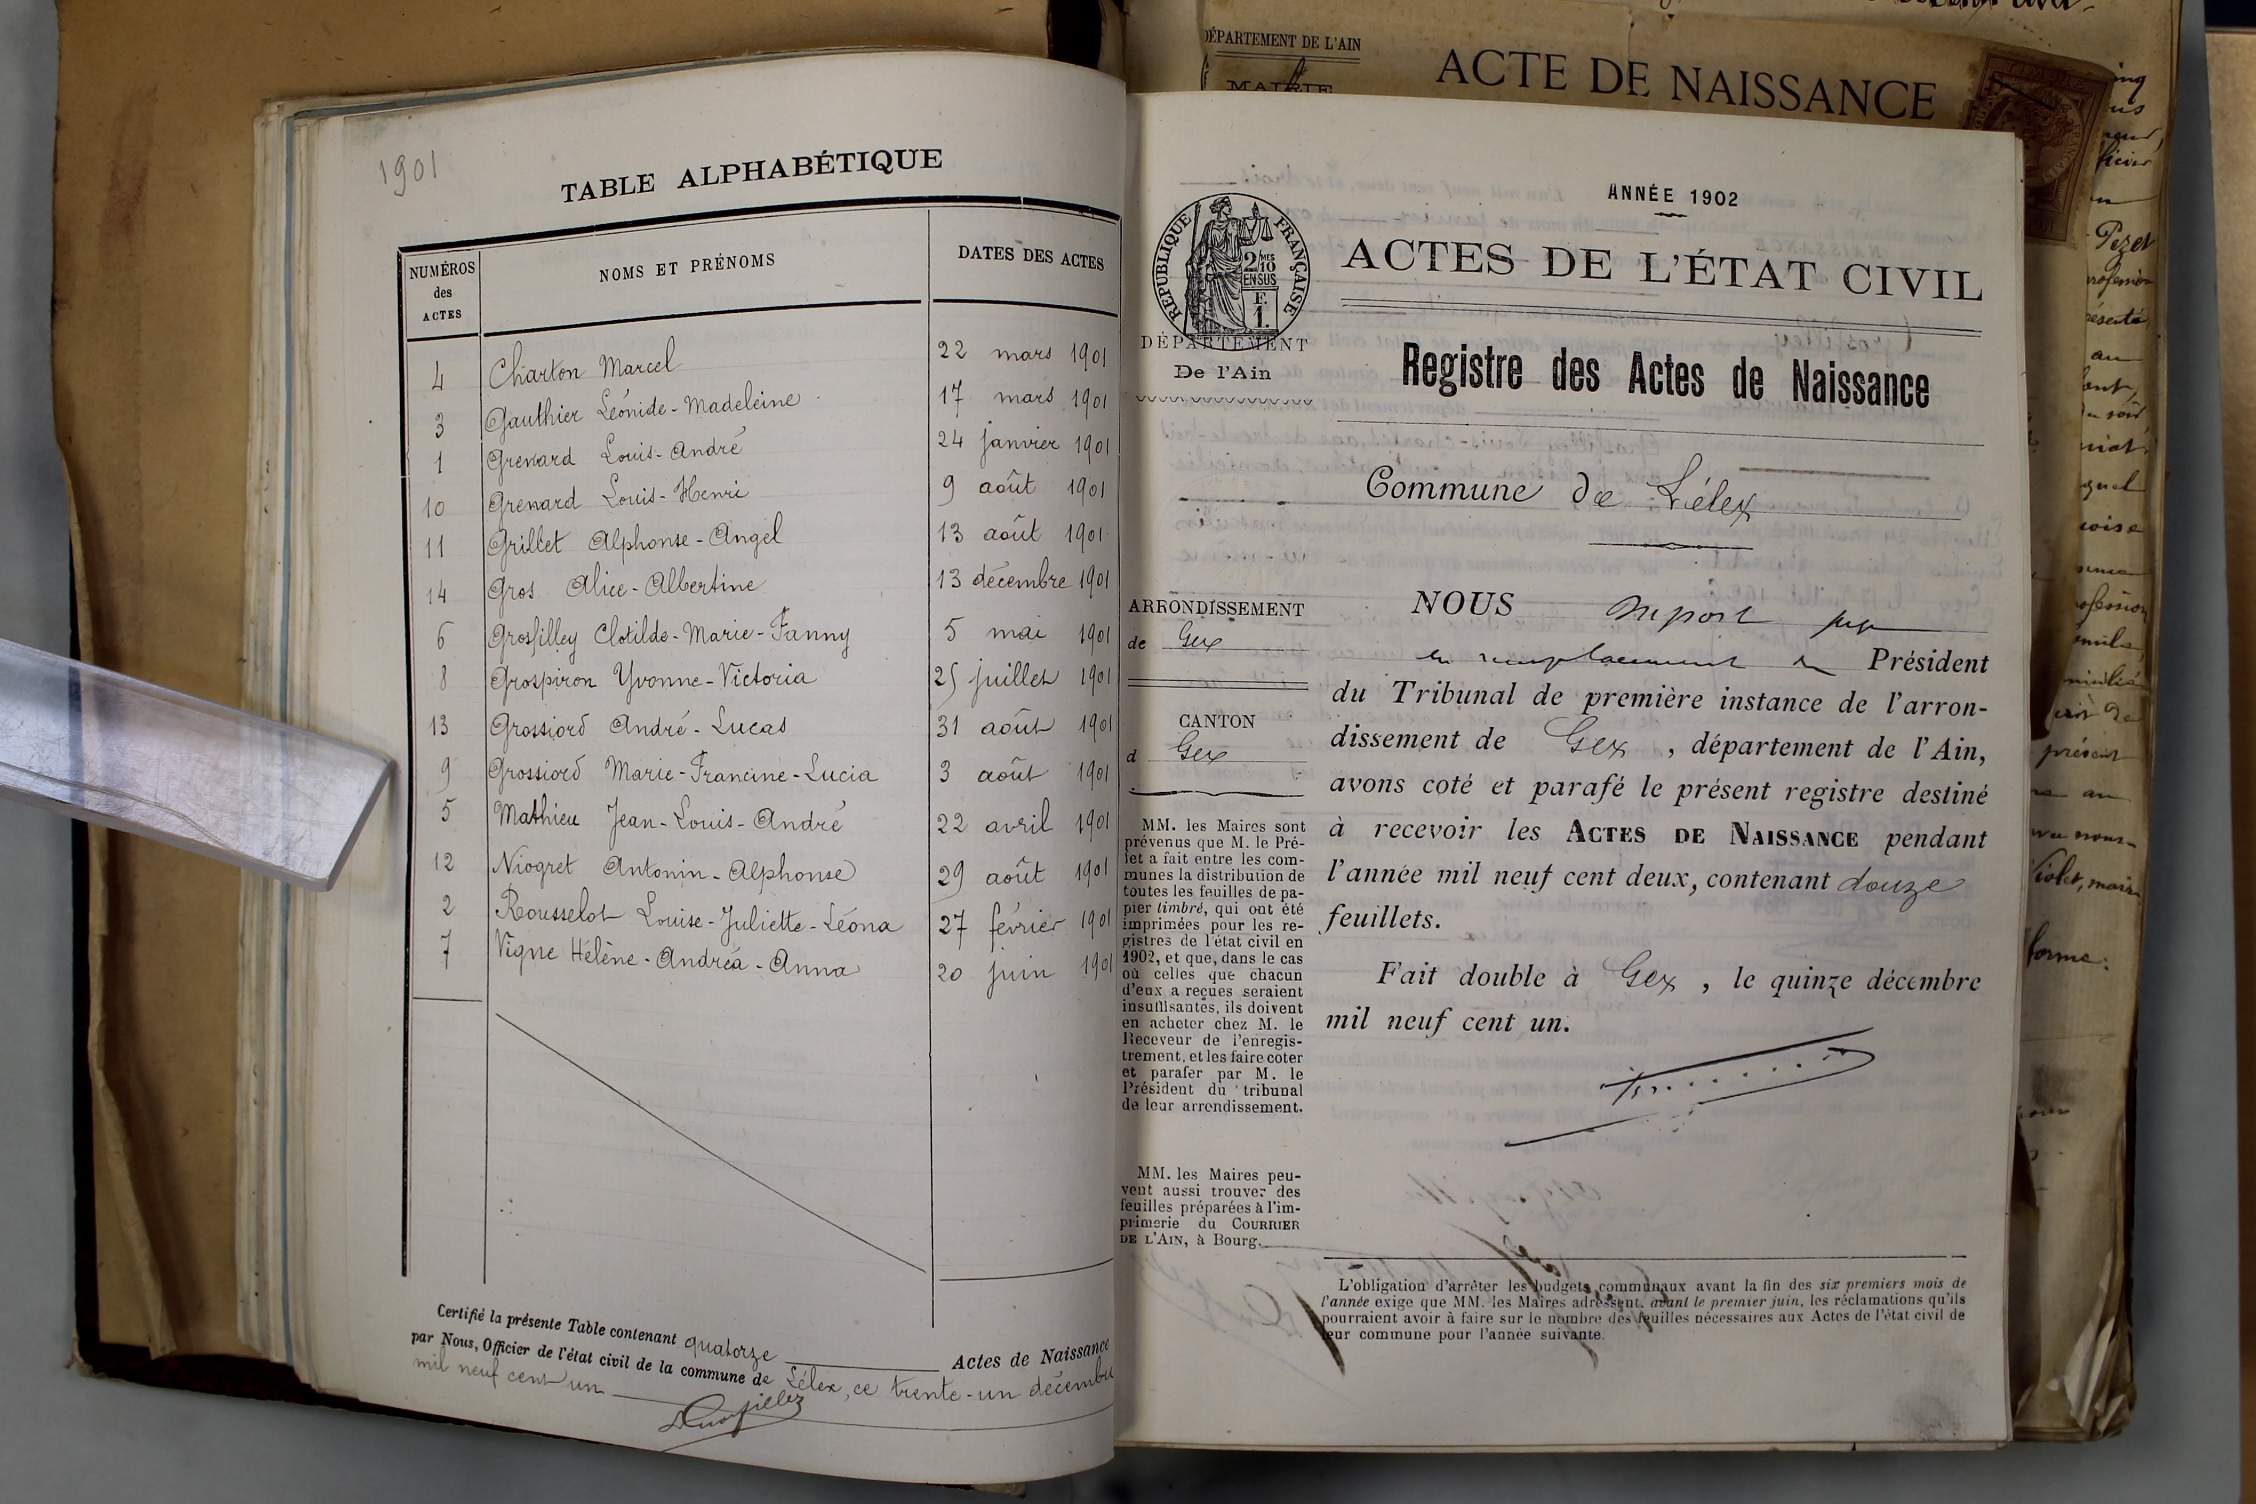 1901
TABLE ALPHABÉTIQUE
NUMÉROS des ACTES NOMS ET PRÉNOMS DATES DES ACTES
4 Charton Marcel 22 mars 1901
3 Gauthier Léonide-Madeleine 17 mars 1901
1 Grenard Louis-André 24 janvier 1901
10 Grenard Louis-Henri 9 août 1901
11 Grillet Alphonse-Angel 13 août 1901
14 Gros Alice-Albertine 13 décembre 1901
6 Grosfilley Clotilde-Marie-Fanny 5 mai 1901
8 Grospiron Yvonne-Victoria 25 juillet 1901
13 Grossiord André-Lucas 31 août 1901
9 Grossiord Marie-Francine-Lucia 3 août 1901
5 Mathieu Jean-Louis-André 22 avril 1901
12 Niogret Antonin-Alphonse 29 août 1901
2 Rousselot Louise-Juliette-Léona 27 février 1901
7 Vigne Hélène-Andréa-Anna 20 juin 1901
Certifié la présente Table contenant quatorze Actes de Naissance
par Nous, Officier de l'état civil de la commune de Lélex, ce trente-un décembre
mil neuf cent un
Grosfilley
DÉPARTEMENT DE L'AIN
MAIRIE
ACTE DE NAISSANCE
ANNÉE 1902
RÉPUBLIQUE FRANÇAISE
2/10 MES
EN SUS
F.
1.
ACTES DE L'ÉTAT CIVIL
DÉPARTEMENT
De l'Ain
Registre des Actes de Naissance
Commune de Lélex
ARRONDISSEMENT
de Gex
CANTON
d Gex
MM. les Maires sont
prévenus que M. le Pré-
fet a fait entre les com-
munes la distribution de
toutes les feuilles de pa-
pier timbré, qui ont été
imprimées pour les re-
gistres de l'état civil en
1902, et que, dans le cas
où celles que chacun
d'eux a reçues seraient
insuffisantes, ils doivent
en acheter chez M. le
Receveur de l'enregis-
trement, et les faire coter
et parafer par M. le
Président du tribunal
de leur arrondissement.
MM. les Maires peu-
vent aussi trouver des
feuilles préparées à l'im-
primerie du COURRIER
DE L'AIN, à Bourg.
NOUS
en remplacement du Président
du Tribunal de première instance de l'arron-
dissement de Gex, département de l'Ain,
avons coté et parafé le présent registre destiné
à recevoir les ACTES DE NAISSANCE pendant
l'année mil neuf cent deux, contenant douze
feuillets.
Fait double à Gex, le quinze décembre
mil neuf cent un.
L'obligation d'arrêter les budgets communaux avant la fin des six premiers mois de
l'année exige que MM. les Maires adressent, avant le premier juin, les réclamations qu'ils
pourraient avoir à faire sur le nombre des feuilles nécessaires aux Actes de l'état civil de
leur commune pour l'année suivante.
Pezet
présent
Violet, maire
forme: